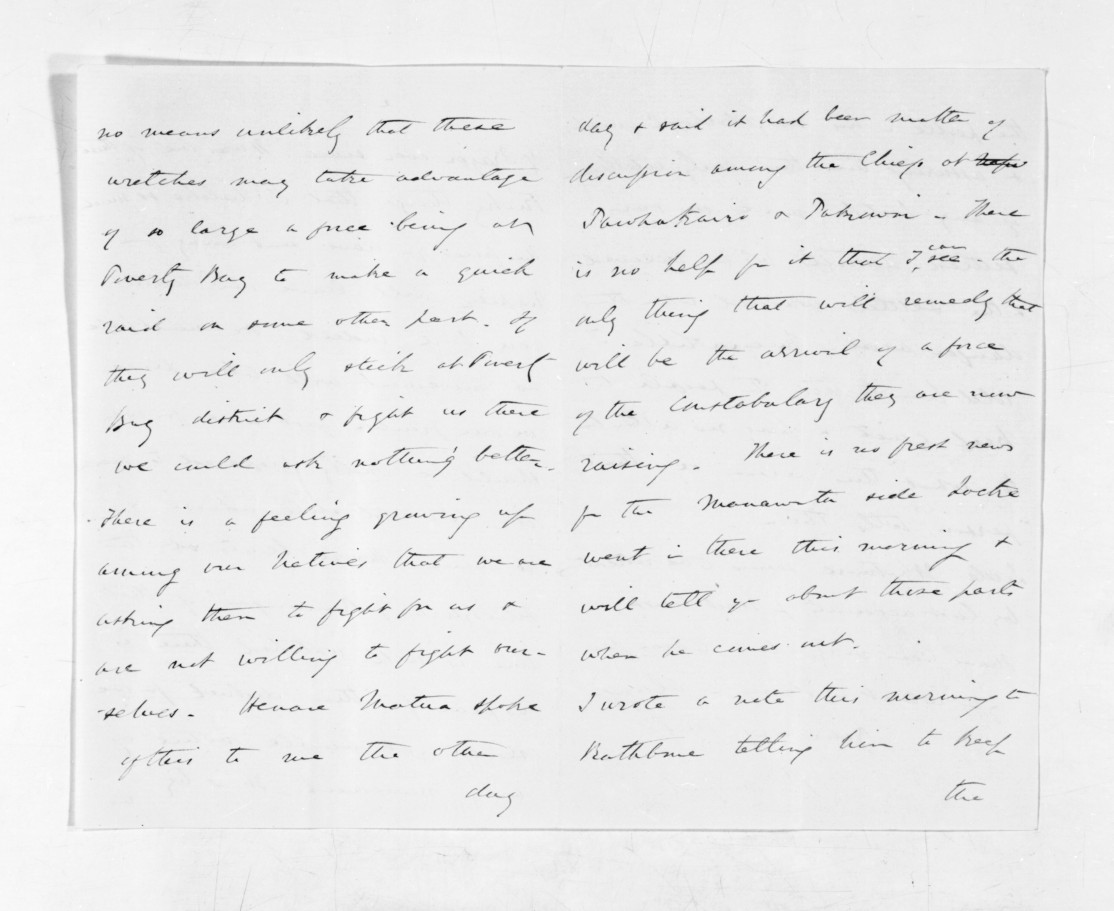 no means unlikely that these
wretches may take advantage
of so large a force being at
Poverty Bay to make a quick
raid on some other part. If
they will only stick at Poverty
Bay district & fight us there
we could ask nothing better.
There is a feeling growing up
among our Natives that we are
asking them to fight for us &
are not willing to fight our-
selves. Henare Matua spoke
of this to me the other
day
day & said it had been matter of
discussion among the Chiefs at
Pawhakairo & Pakowai - There
is no help for it that I can see - the
only thing that will remedy that
will be the arrival of a force
of the Constabulary they are now
raising. There is no fresh news
fm the Manawatu side Locke
went in there this morning &
will tell you about those parts
when he comes out.
I wrote a note this morning to
Rathbone telling him to keep
the